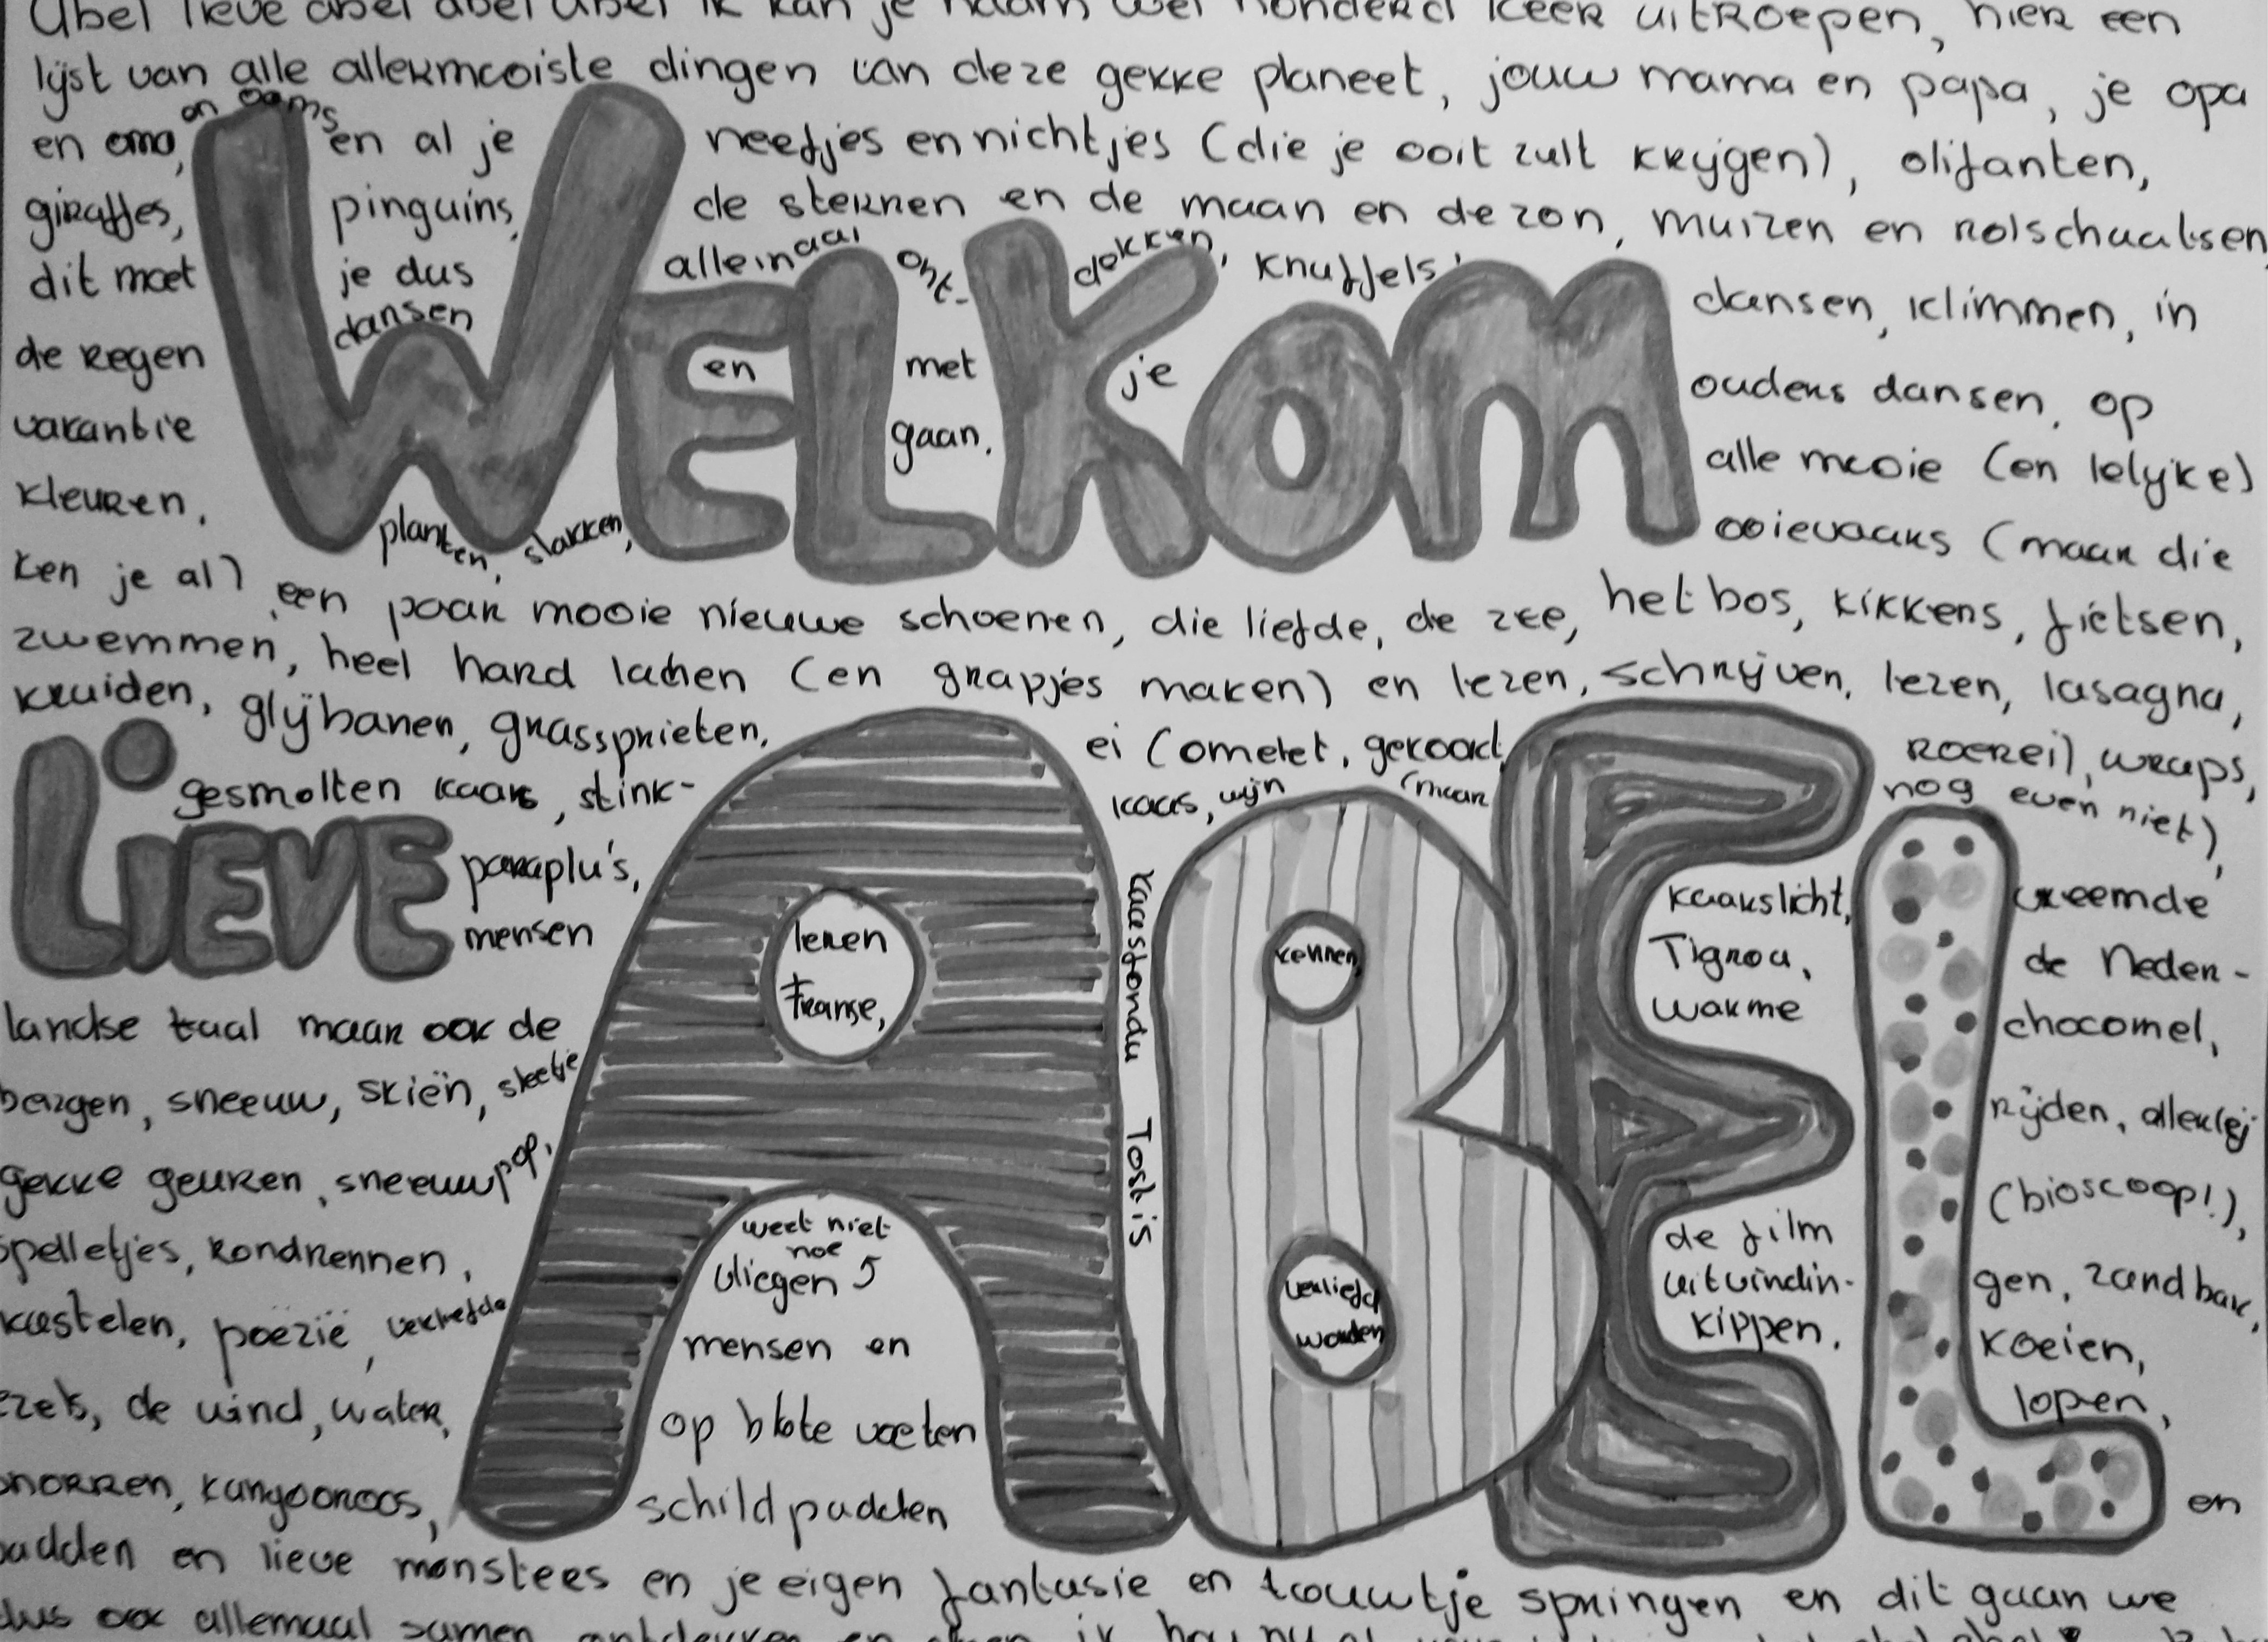 Abel lieve abel abel abel ik kan je naam wel honderd keer uitroepen, hier een
lijst van alle allermooiste dingen van deze gekke planeet, jouw mama en papa, je opa
en oma, en ooms en al je neefjes en nichtjes (die je ooit zult krijgen), olifanten,
giraffes, pinguins, de sterren en de maan en de zon, muizen en rolschaatsen
dit moet je dus allemaal ont- dekken, knuffels, dansen, klimmen, in
de regen dansen en met je ouders dansen, op
vakantie gaan, alle mooie (en lelijke)
kleuren, planten, slakken, ooievaars (maar die
ken je al) een paar mooie nieuwe schoenen, die liefde, de zee, het bos, kikkers, fietsen,
zwemmen, heel hard lachen (en grapjes maken) en lezen, schrijven, lezen, lasagna,
kruiden, glijbanen, grassprieten, ei (omelet, gekookt, roerei), wraps,
gesmolten kaas, stink- kaas, wijn (maar nog even niet),
paraplu's, kaarslicht, vreemde
mensen leren kennen, Tigrou, de Neder-
landse taal maar ook de Franse, kaasfondu warme chocomel,
bergen, sneeuw, skiën, sleetje rijden, allerlei
gekke geuren, sneeuwpop, Tostis (bioscoop!),
spelletjes, rondrennen, weet niet hoe vliegen de film uitvindin- gen, zandbak,
kastelen, poëzie, verliefde mensen en verliefd worden kippen, koeien,
ezels, de wind, water, op blote voeten lopen,
snorren, kangooroos, schildpadden en
padden en lieve monsters en je eigen fantasie en touwtje springen en dit gaan we
dus ook allemaal samen ontdekken en
WELKOM
LIEVE
ABEL